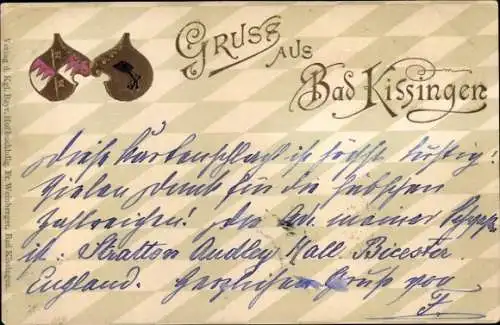 Gruss aus
Bad Kissingen
Diese Kartenschlacht ist höchst lustig!
Vielen Dank für die hübschen
zahlreichen! Die Adr. meiner
ist: Stratton Audley Hall. Bicester
England. Herzlichen Gruß von
F.
Verlag d. Kgl. Bayr. Hofbuchhdlg. Fr. Weinberger, Bad Kissingen.